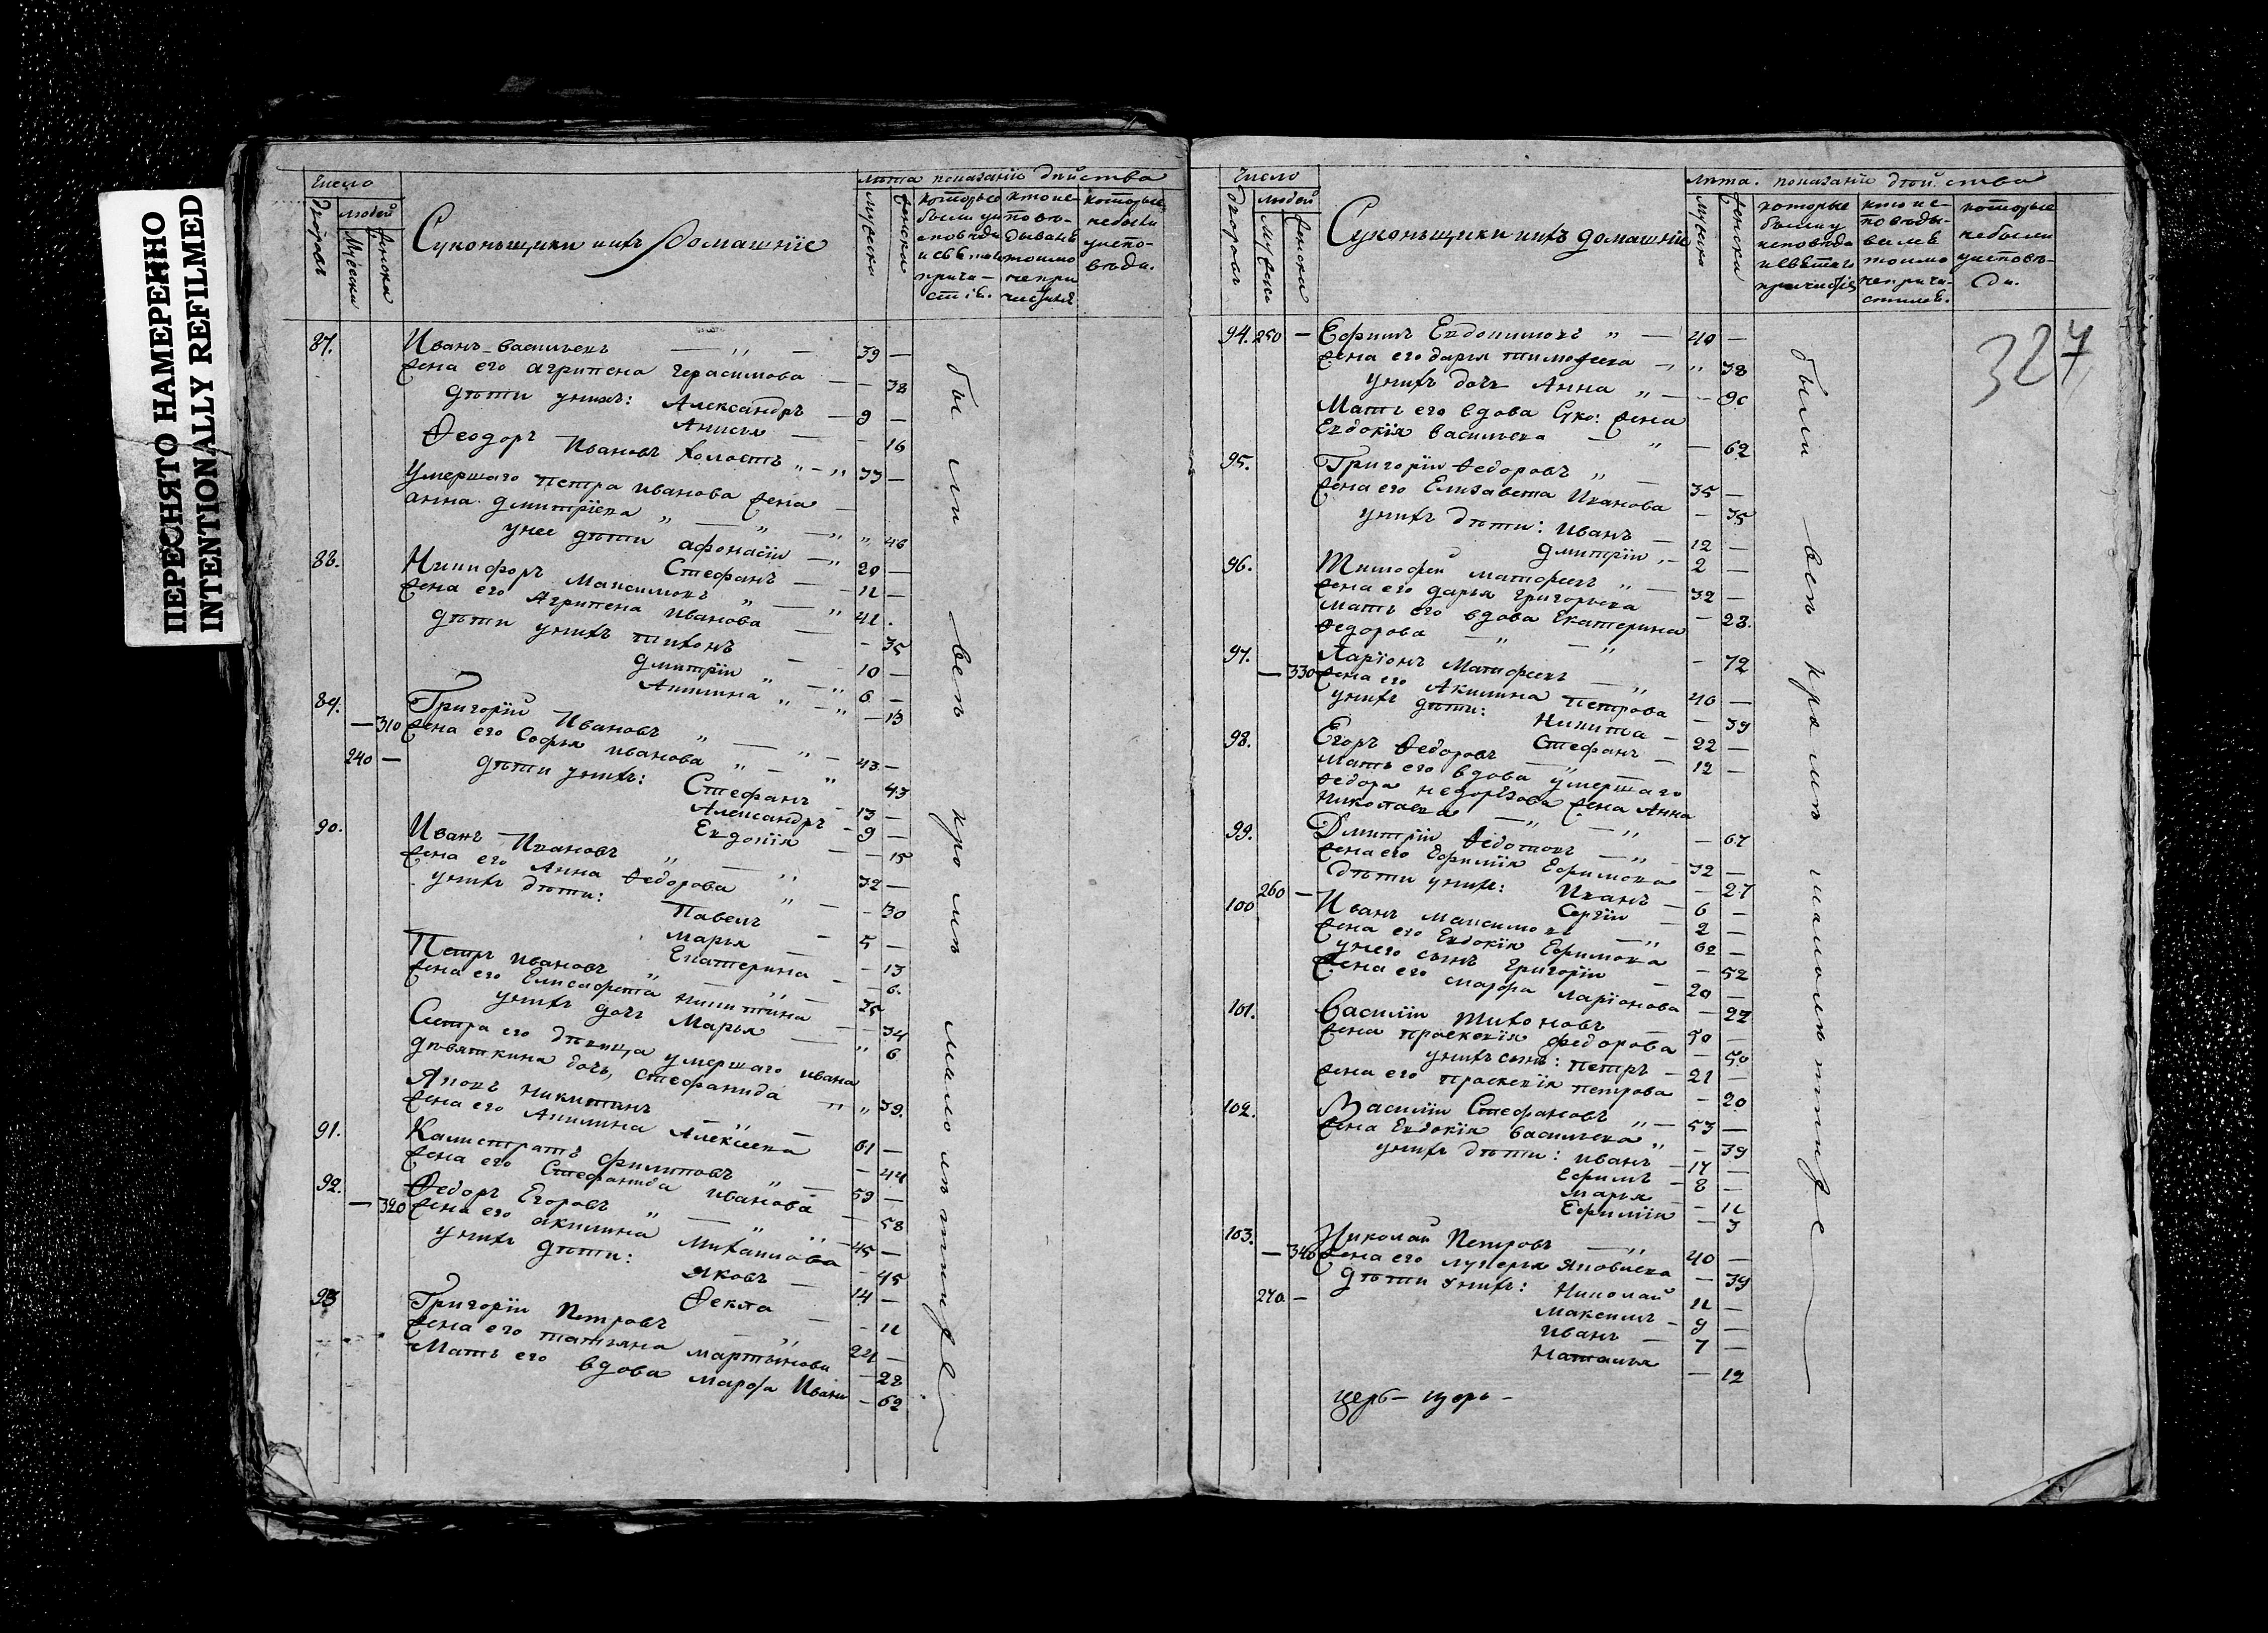 ПЕРЕСНЯТО НАМЕРЕННО
INTENTIONALLY REFILMED
Число
людей
Дворовъ
Мужска
Женска
Суконьщики ихъ Домашніе
лѣта показаніе дѣйства
мужска
женска
которые были у исповѣди и св. причастіе.
кто исповѣдывалъ токмо не причистился
которые небыли уисповѣди.
87. Иванъ Васильевъ 39 —
жена его агрипена герасимова — 38
дѣти унихъ: Александръ — 9 —
Анисья — 16
Ѳеодоръ Ивановъ холостъ 33 —
Умершаго петра иванова жена
анна дмитріева „ 46
унее дѣти афонасіи — 20 —
Стефанъ — 11 —
88. Никифоръ Максимовъ 41.
жена его Агрипена иванова — 35
дѣти унихъ тихонъ — 10 —
дмитріи „ 6 —
Акилина „ — 13
89. Григоріи Ивановъ „ 43 —
— 310 жена его Софья иванова „ 43
240 — дѣти унихъ: Стефанъ 13 —
Александръ — 9 —
Евдокія — 15
90. Иванъ Ивановъ „ 32 —
жена его Анна Ѳедорова — 30
унихъ дѣти: Павелъ — 5 —
марья — 13
Екатерина — 6.
Петръ ивановъ „ 35
жена его Елисафета никитина — 34
унихъ дочь Марья — „ 6
Сестра его дѣвица умершаго ивана
дѣвяткина дочь, стефанида „ 39.
Яковъ Никитинъ 61 —
жена его Акилина Алексеева — 44
91. Калистратъ филиповъ „ 59 —
жена его Стефанида иванова — 58
92. Ѳедоръ Егоровъ „ 45 —
— 320 жена его акилина Михаилова — 45
унихъ дѣти: яковъ — 14 —
Ѳекла — 11
93 Григоріи Петровъ — 24 —
жена его татьяна мартынова — 28
Мать его вдова марфа Ивано — 62
были всѣ кромѣ малолѣтнихъ
Число
людей
Дворовъ
Мужска
Женска
Суконьщики ихъ домашніе
лѣта. показаніе дѣйства
мужска
женска
которые были у исповѣди и святаго причастія
кто исповѣдывалсь токмо не причистился.
которые небыли уисповѣди.
327
94. 250 — Ефимъ Евдокимовъ „ — 40 —
жена его дарья тимофеева — „ 38
унихъ дочь Анна „ — 9
Мать его вдова Суко: жена
Евдокія васильева „ — 62
95. Григоріи Ѳедоровъ „ 35 —
жена его Елизавета Иванова — 35
унихъ дѣти: Иванъ — 12 —
дмитріи „ 2 —
96. Тимофеи матфеевъ „ 32 —
жена его дарья григорьева — 28.
мать его вдова Екатерина
Ѳедорова „ — 72
97. Ларіонъ Матфеевъ „ 40 —
— 330 жена его Акилина петрова — 39
унихъ дѣти: Никита — 22 —
Стефанъ — 12 —
98. Егоръ Ѳедоровъ
мать его вдова умершаго
Ѳедора жена Анна
Николаева „ — 67
99. Дмитріи Ѳедотовъ „ 32 —
жена его Ефимія Ефимова — 27
дѣти унихъ: Иванъ — 6 —
260 — Сергіи — 2 —
100 Иванъ максимовъ „ 62 —
жена его Евдокія Ефимова — 52
унего сынъ григоріи — 20 —
жена его марфа ларіонова — 22
101. Василіи тихоновъ — 50 —
жена праскевія федорова — 50
унихъ сынъ: петръ — 21 —
жена его праскевія петрова — 20
102. Василіи Стефановъ „ 53 —
жена Евдокія васильева „ — 39
унихъ дѣти: иванъ — 17 —
Ефимъ — 8 —
марья — 11
Ефимія — 3
103. Николаи Петровъ „ 40 —
— 340 жена его лукерья яковлева — 39
270 — дѣти унихъ: Николаи 11 —
Максимъ — 9 —
иванъ — 7 —
Наталья — 12
были всѣ кромѣ малолѣтнихъ